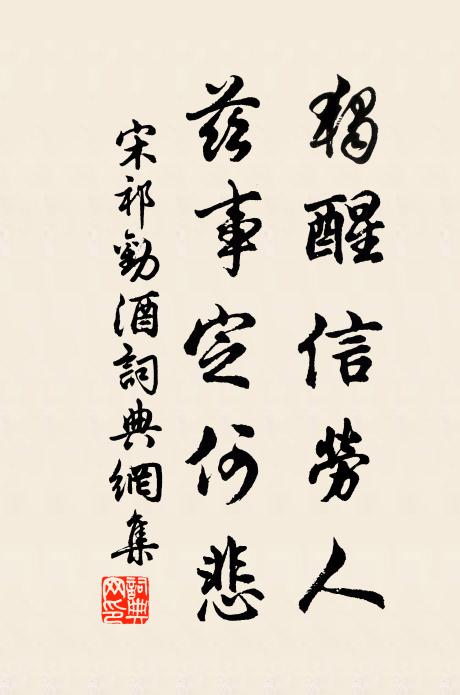 獨醒信勞人
茲事定何悲
宋祁勸酒詞典網集
詞典
网印